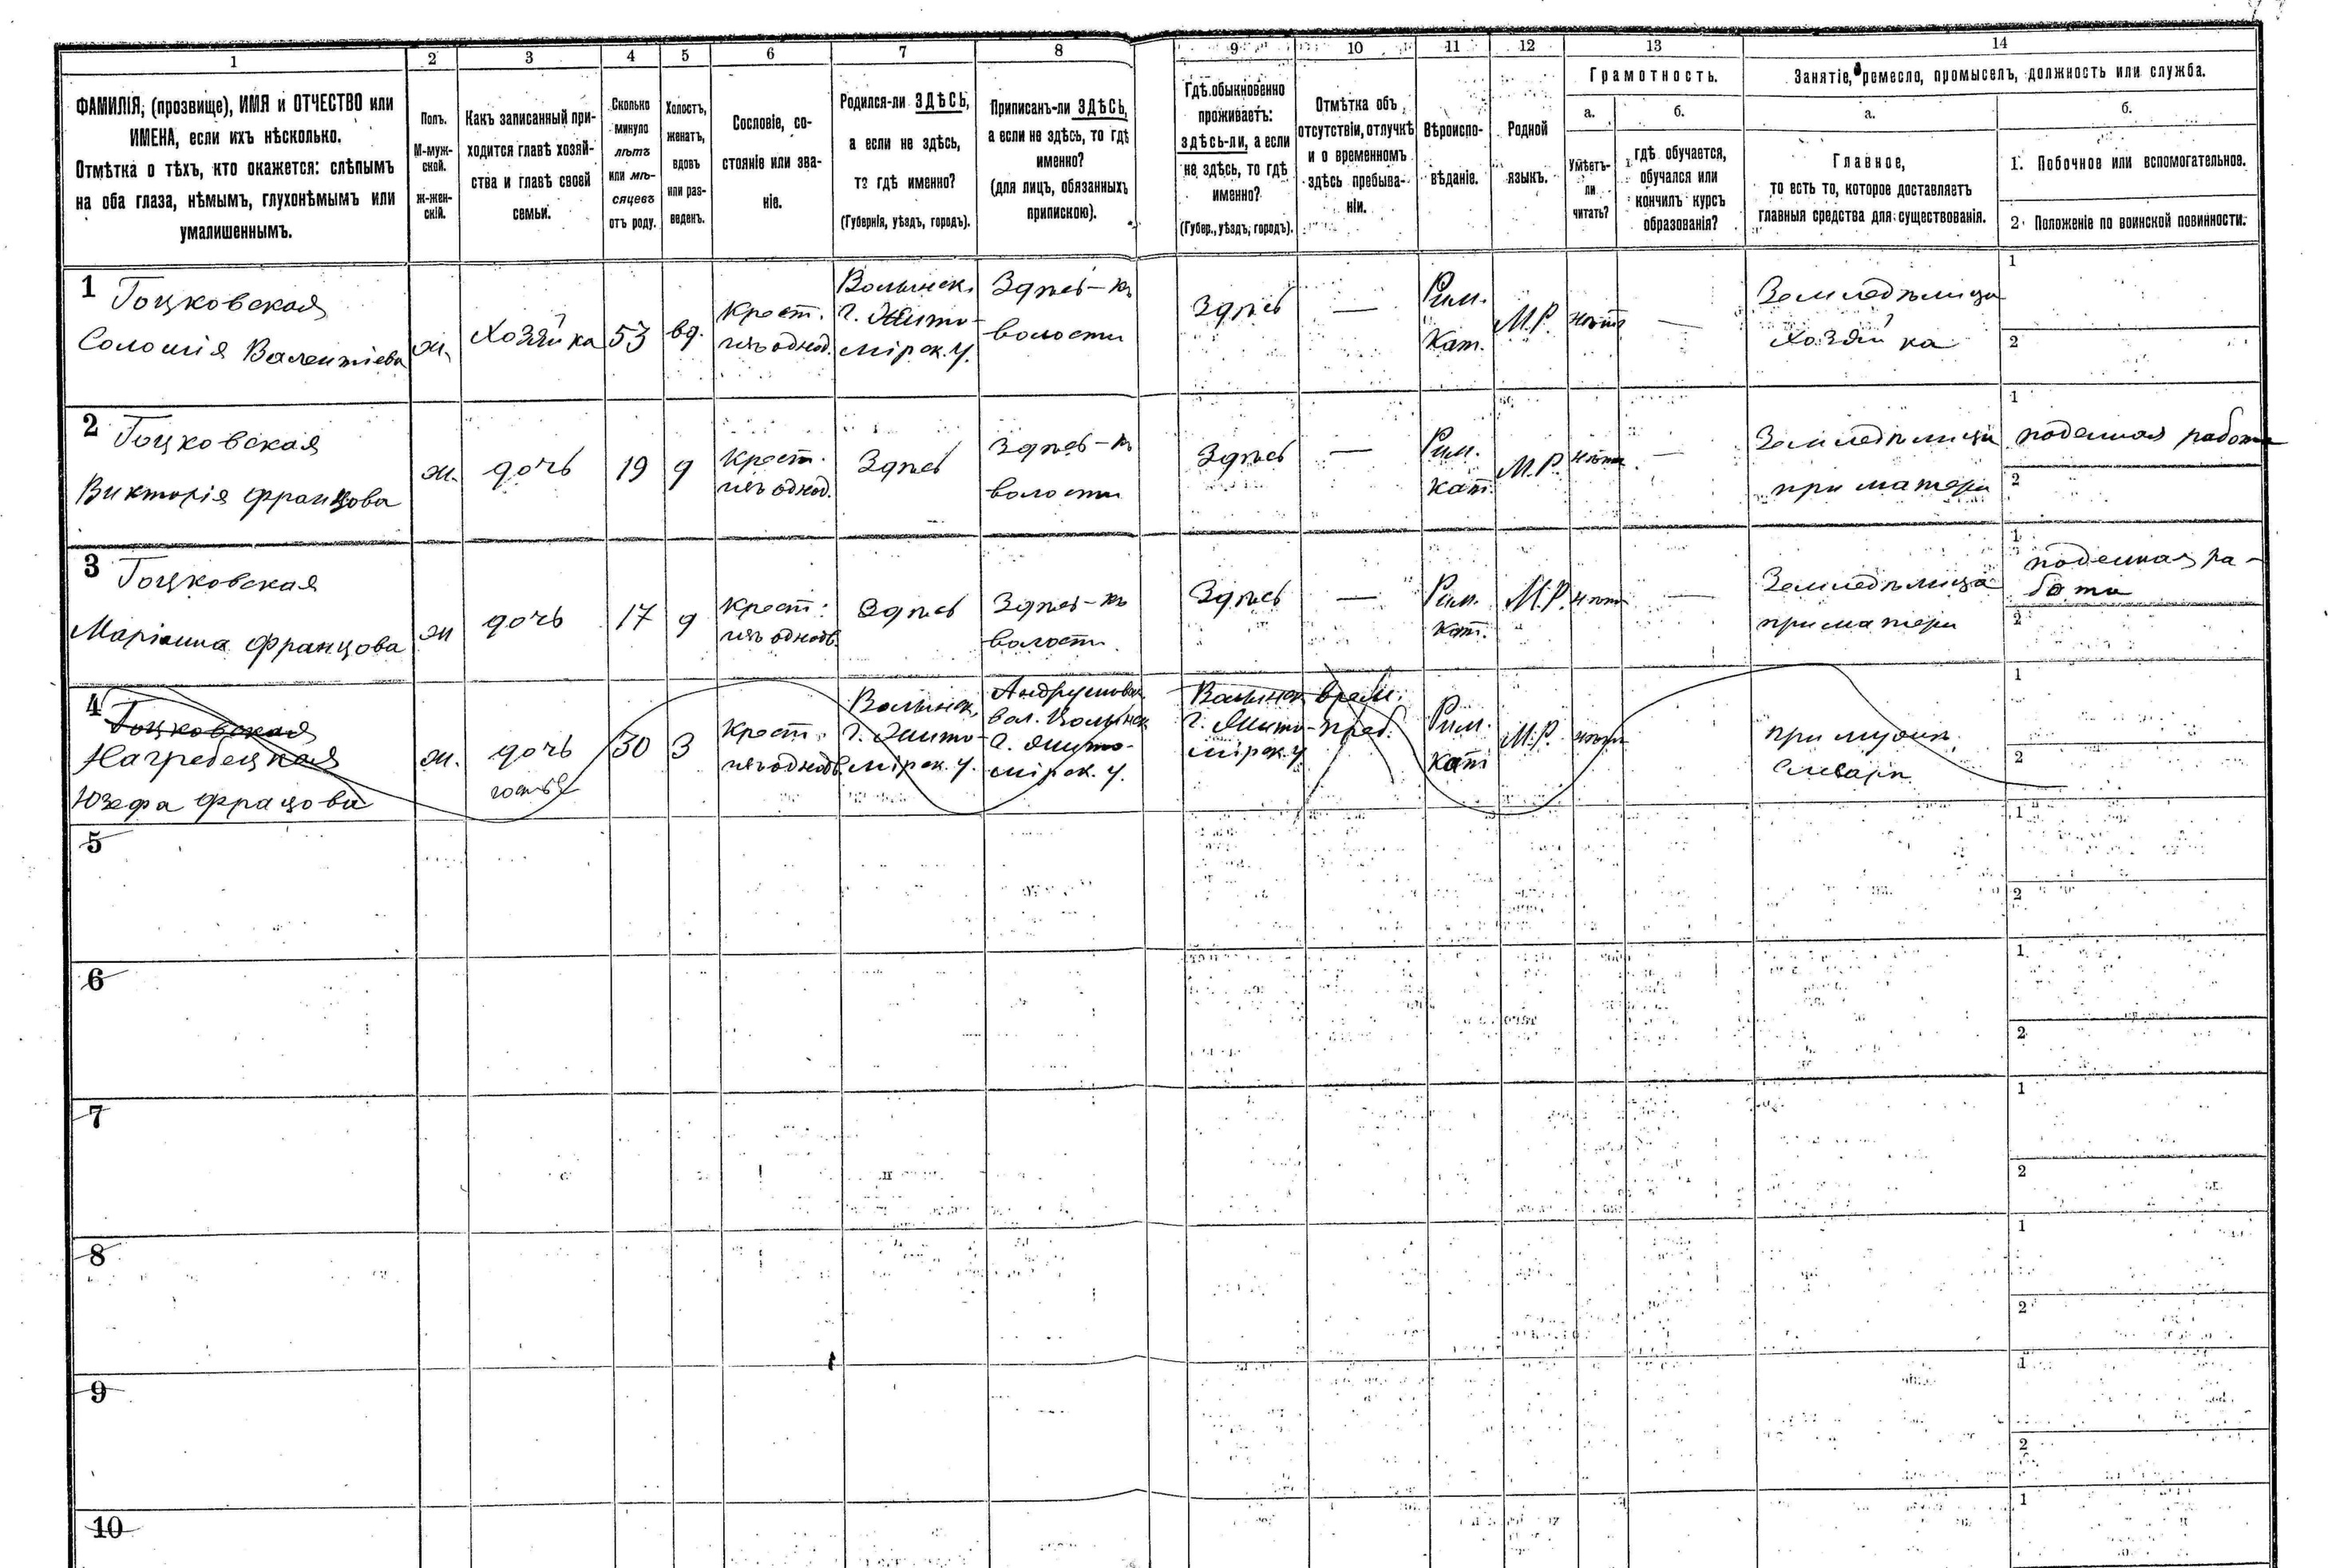 1 2 3 4 5 6 7 8 9 10 11 12 13 14
ФАМИЛІЯ, (прозвище), ИМЯ и ОТЧЕСТВО или
ИМЕНА, если ихъ нѣсколько.
Отмѣтка о тѣхъ, кто окажется: слѣпымъ
на оба глаза, нѣмымъ, глухонѣмымъ или
умалишеннымъ.
Полъ.
М-муж-
ской.
ж-жен-
скій.
Какъ записанный при-
ходится главѣ хозяй-
ства и главѣ своей
семьи.
Сколько
минуло
лѣтъ
или мѣ-
сяцевъ
отъ роду.
Холостъ,
женатъ,
вдовъ
или раз-
веденъ.
Сословіе, со-
стояніе или зва-
ніе.
Родился-ли ЗДѢСЬ,
а если не здѣсь,
то гдѣ именно?
(Губернія, уѣздъ, городъ).
Приписанъ-ли ЗДѢСЬ,
а если не здѣсь, то гдѣ
именно?
(для лицъ, обязанныхъ
припискою).
Гдѣ обыкновенно
проживаетъ:
здѣсь-ли, а если
не здѣсь, то гдѣ
именно?
(Губер., уѣздъ, городъ).
Отмѣтка объ
отсутствіи, отлучкѣ
и о временномъ
здѣсь пребыва-
ніи.
Вѣроиспо-
вѣданіе.
Родной
языкъ.
Грамотность.
а.
Умѣетъ-
ли
читать?
б.
гдѣ обучается,
обучался или
кончилъ курсъ
образованія?
Занятіе, ремесло, промыселъ, должность или служба.
а.
Главное,
то есть то, которое доставляетъ
главныя средства для существованія.
б.
1. Побочное или вспомогательное.
2. Положеніе по воинской повинности.
1
Гоцковская
Соломія Валентіева
ж.
Хозяйка
53
вд.
Крест.
изъ однод.
Волынск.
г. Жито-
мірск. у.
Здѣсь-къ
волости
Здѣсь
—
Рим.
Кат.
М.Р.
нѣтъ
—
Земледѣлица
хозяйка
1
2
2
Гоцковская
Викторія Францова
ж.
дочь
19
д
Крест.
изъ однод.
Здѣсь
Здѣсь-къ
волости
Здѣсь
—
Рим.
Кат.
М.Р.
нѣтъ
—
Земледѣлица
при матери
1
поденная работа
2
3
Гоцковская
Маріанна Францова
ж
дочь
17
д
Крест.
изъ однодв.
Здѣсь
Здѣсь-къ
волости
Здѣсь
—
Рим.
Кат.
М.Р.
нѣтъ
—
Земледѣлица
при матери
1
поденная ра-
бота
2
4
Гоцковская
Нагребецкая
Юзефа Фрацова
ж.
дочь
гостья
30
З
Крест.
изъ однодв.
Волынск.
г. Жито-
мірск. у.
вол. Волынск
г. Жито-
мірск. у.
Волынск
г. Жито-
мірск. у.
врем.
преб.
Рим.
Кат
М.Р.
нѣтъ
1
2
5
1
2
6
1
2
7
1
2
8
1
2
9
1
2
10
1